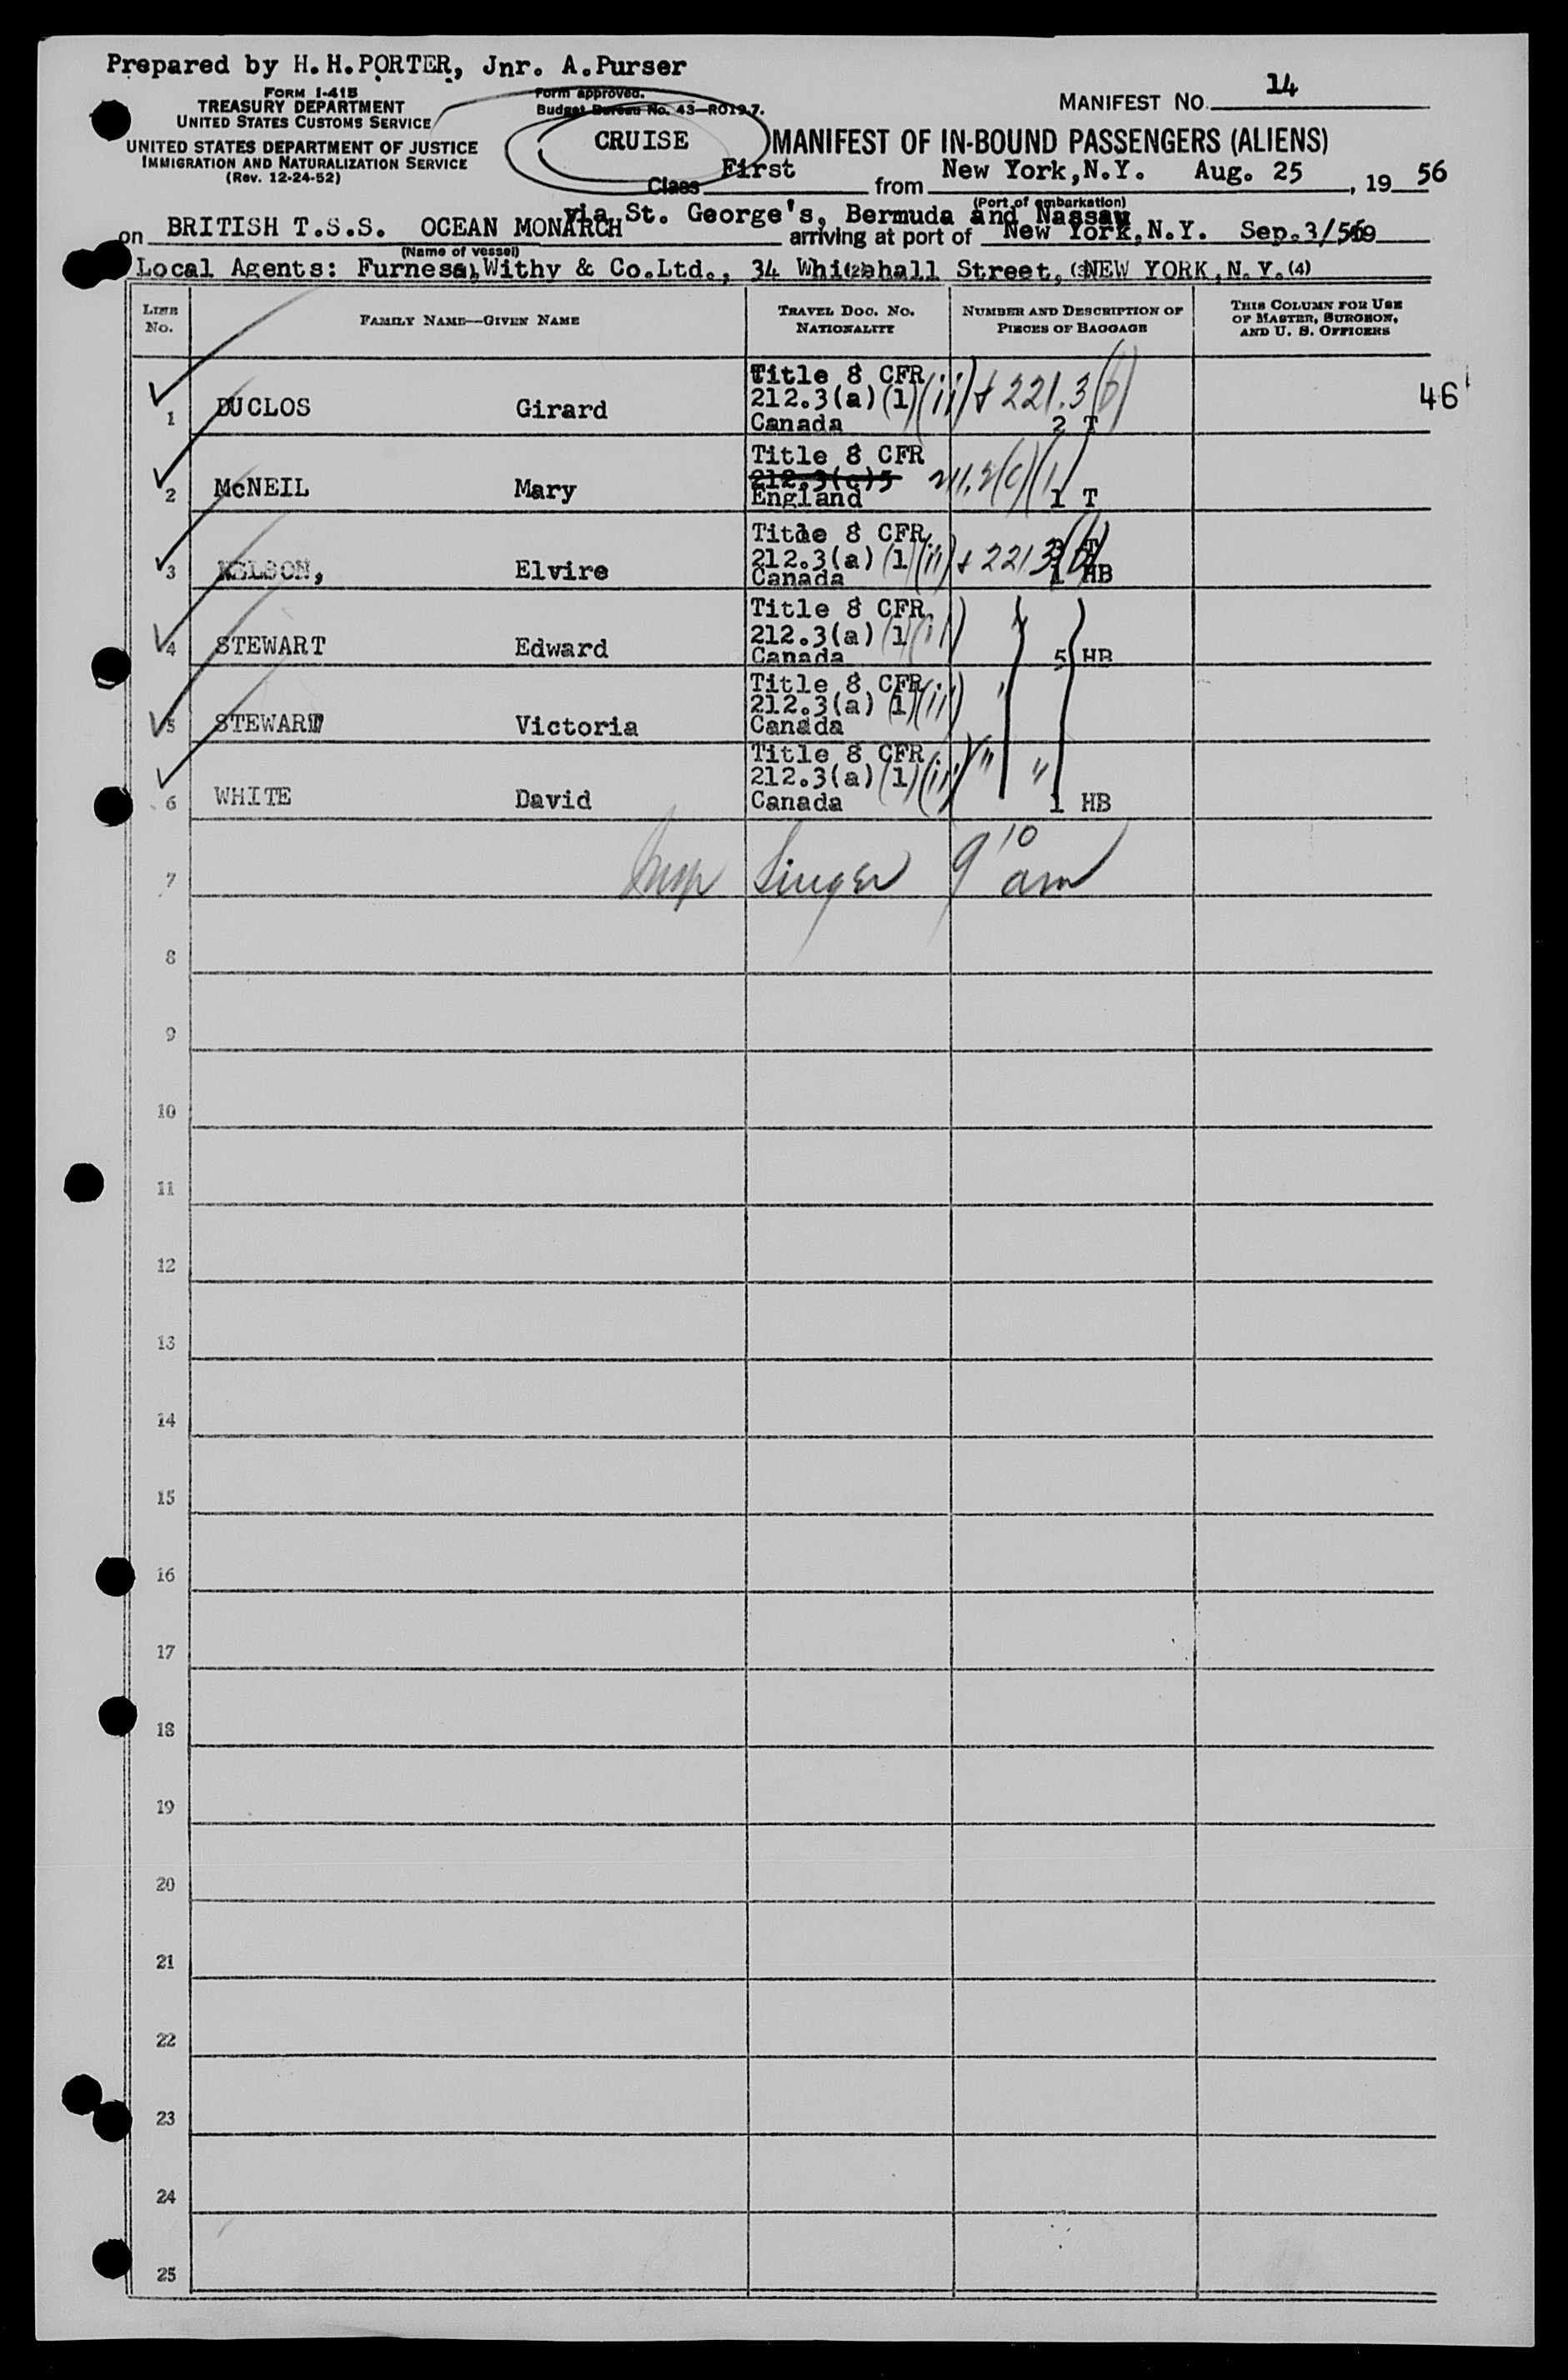 Prepared by H.H.PORTER, Jnr. A.Purser
FORM I-418
TREASURY DEPARTMENT
UNITED STATES CUSTOMS SERVICE
UNITED STATES DEPARTMENT OF JUSTICE
IMMIGRATION AND NATURALIZATION SERVICE
(Rev. 12-24-52)
Form approved.
Budget Bureau No. 43-RO19.7.
CRUISE
MANIFEST NO. 14
MANIFEST OF IN-BOUND PASSENGERS (ALIENS)
Class First from New York,N.Y. Aug. 25, 19 56
(Port of embarkation)
via St. George's, Bermuda and Nassau
on BRITISH T.S.S. OCEAN MONARCH arriving at port of New York,N.Y. Sep.3/56 19
(Name of vessel)
Local Agents: Furness, Withy & Co.Ltd., 34 Whitehall Street, NEW YORK,N.Y.
(1) (2) (3) (4)
LINE No.
FAMILY NAME—GIVEN NAME
TRAVEL DOC. NO. NATIONALITY
NUMBER AND DESCRIPTION OF PIECES OF BAGGAGE
THIS COLUMN FOR USE OF MASTER, SURGEON, AND U. S. OFFICERS
Title 8 CFR
212.3(a)(1)(ii) + 221.3(b) 46
1 DUCLOS Girard Canada 2 T
Title 8 CFR
212.3(c)5
2 McNEIL Mary England 1 T
Titde 8 CFR
212.3(a)(1)(ii) + 221 3(b)
3 NELSON, Elvire Canada 1 HB
Title 8 CFR
212.3(a)(1)(ii) "
4 STEWART Edward Canada 5 HB
Title 8 CFR
212.3(a)(1)(ii) "
5 STEWART Victoria Canada
Title 8 CFR
212.3(a)(1)(ii) " "
6 WHITE David Canada 1 HB
7 Insp Singer 9 10 am
8
9
10
11
12
13
14
15
16
17
18
19
20
21
22
23
24
25